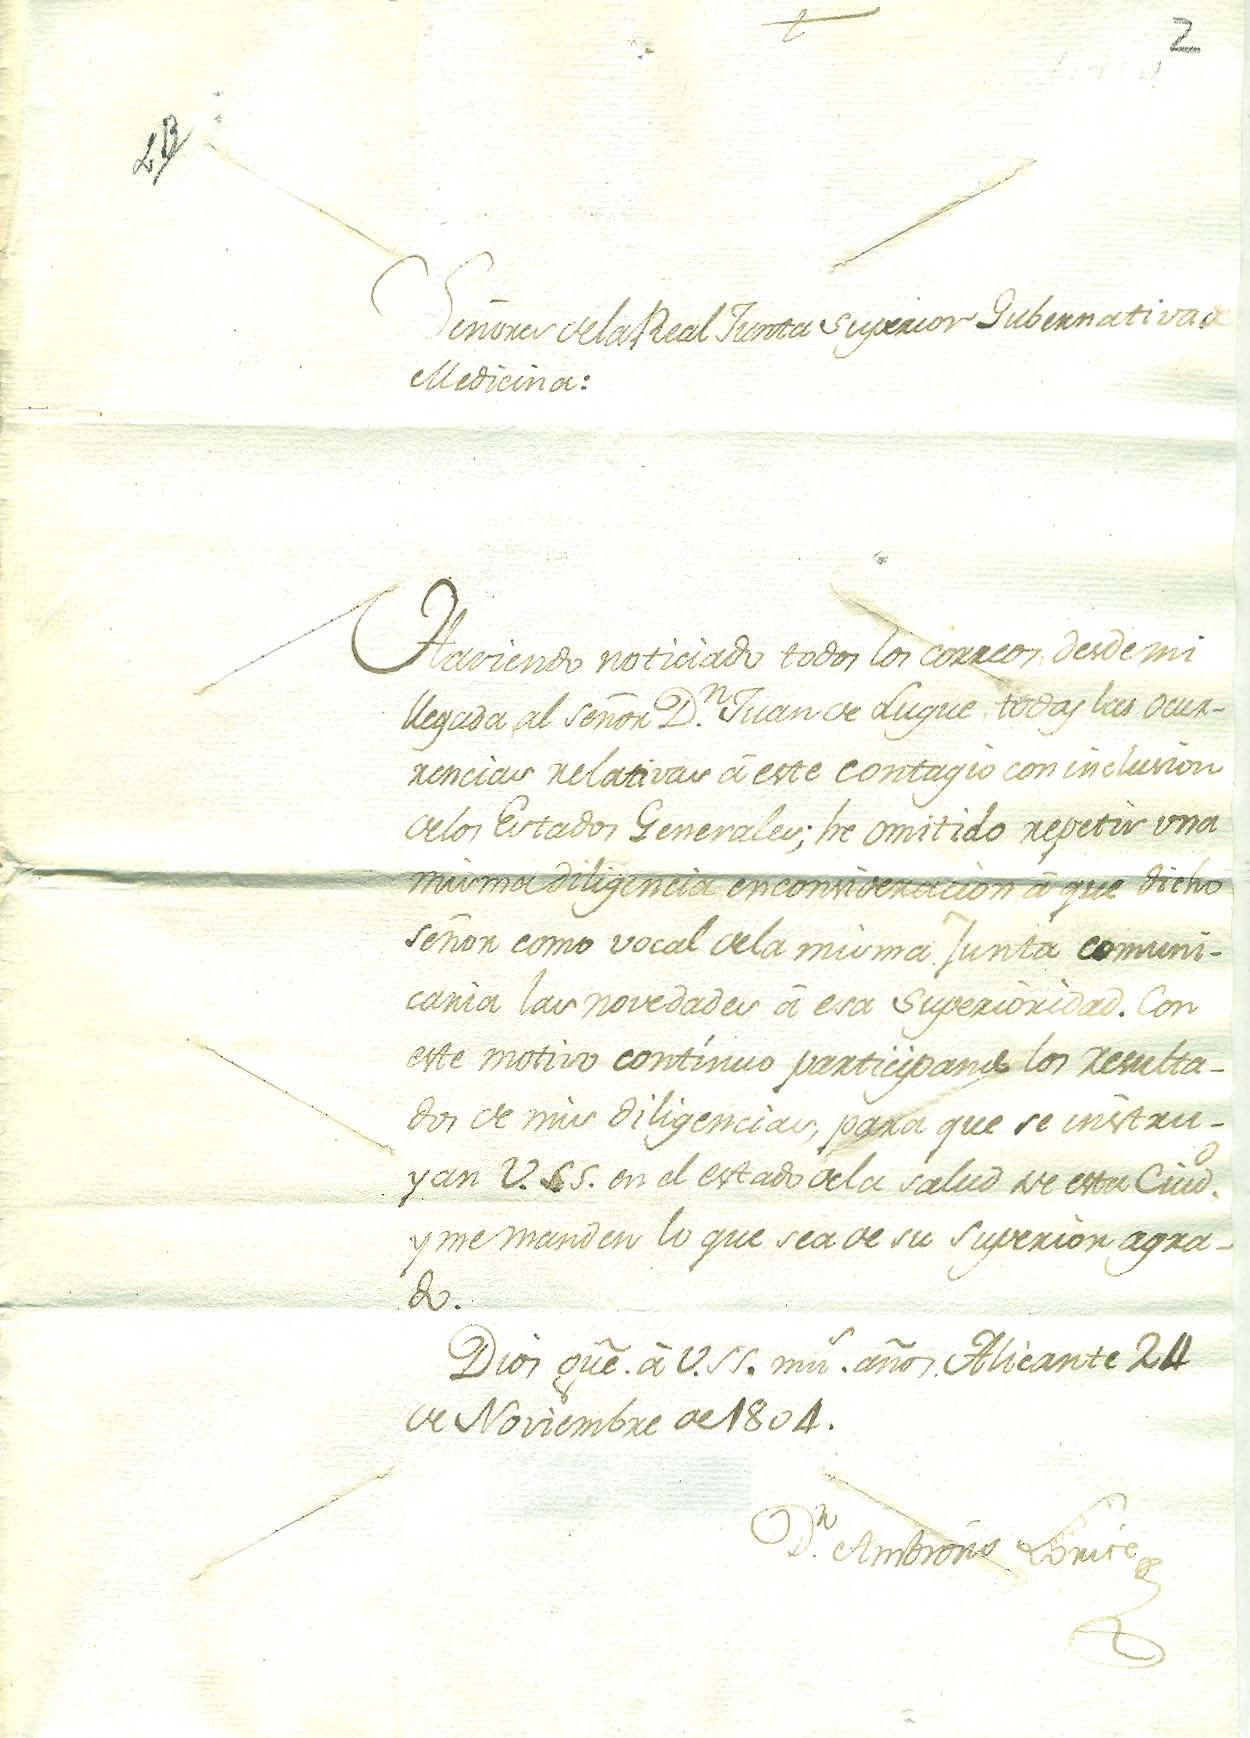 2
Señores de la Real Junta Superior Gubernativa de
Medicina:
Haviendo noticiado todos los correos, desde mi
llegada, al señor D.ⁿ Juan de Luque, todas las ocur-
rencias relativas á este contagio con inclusion
de los Estados Generales; he omitido repetir una
misma diligencia en consideracion á que dicho
señor como vocal de la misma Junta comuni-
caria las novedades á esa Superioridad. Con
este motivo contínuo participando los resulta-
dos de mis diligencias, para que se instru-
yan V.SS. en el estado de la salud de esta Ciud.ᵈ
y me manden lo que sea de su superior agra-
do.
Dios güe. á V.SS. mu.ˢ años. Alicante 24
de Noviembre de 1804.
D.ⁿ Ambrosio Lorite